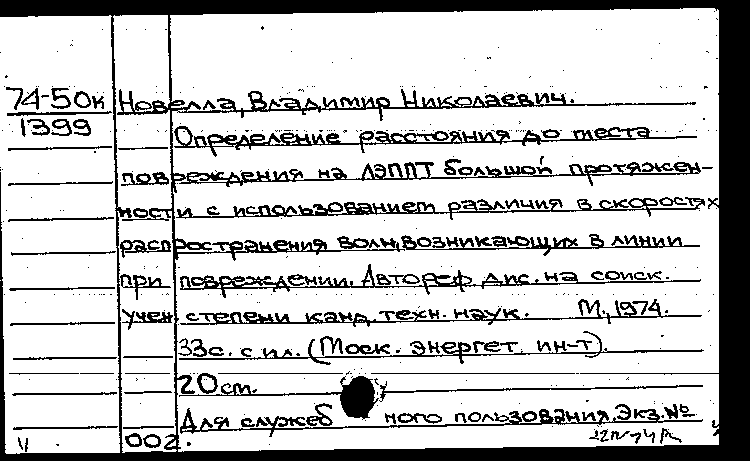 74-50к Новелла, Владимир Николаевич.
1399
Определение расстояния до места
повреждения на ЛЭППТ большой протяжен-
ности с использованием различия в скоростях
распространения волн, возникающих в линии
при повреждении. Автореф. дис. на соиск.
учен. степени канд. техн. наук. М., 1974.
33с. с ил. (Моск. энергет. ин-т).
20 см.
Для служебного пользования. Экз. №
002.